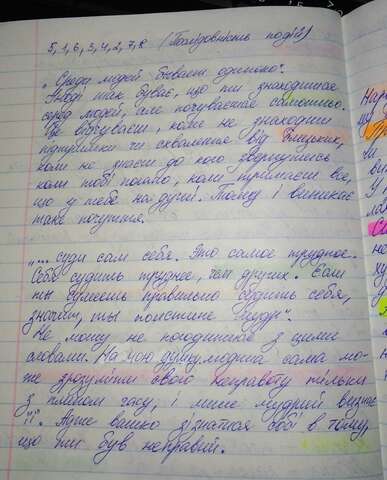 5, 1, 6, 3, 4, 2, 7, 8 (Послідовність подій)
„Среди людей бывает одиноко".
Іноді так буває, що ти знаходишся
серед людей, але почуваєшся самотньо.
Це відчуваєш, коли не знаходиш
підтримки чи схвалення від близьких,
коли не знаєш до кого звернутись
коли тобі погано, коли тримаєш все,
що у тебе на душі. Тому і виникає
таке почуття.
„... суди сам себя. Это самое трудное.
Себя судить труднее, чем других. Если
ты сумеешь правильно судить себя,
значит, ты поистине мудр".
Не можу не погодитися з цими
словами. На мою думку людина сама мо-
же зрозуміти свою неправоту тільки
з плином часу, і лише мудрий визнає
її. Адже важко зізнатися собі в тому,
що ти був неправий.